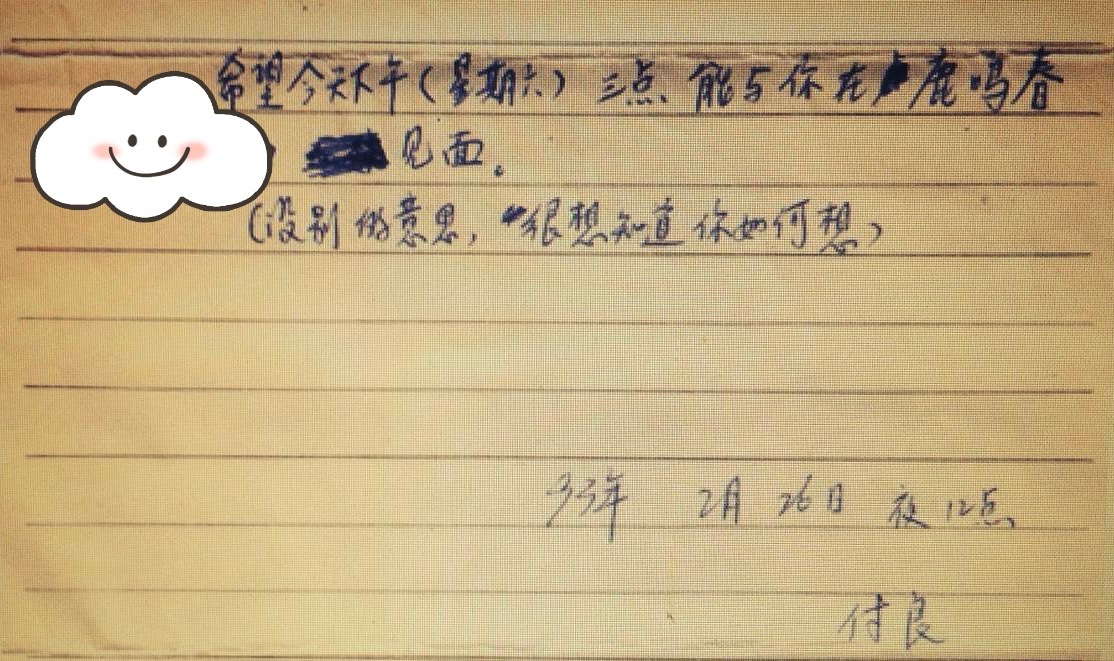 希望今天下午(星期六)三点能与你在鹿鸣春
见面。
(没别的意思,很想知道你如何想)
93年 2月 26日 夜12点
付良